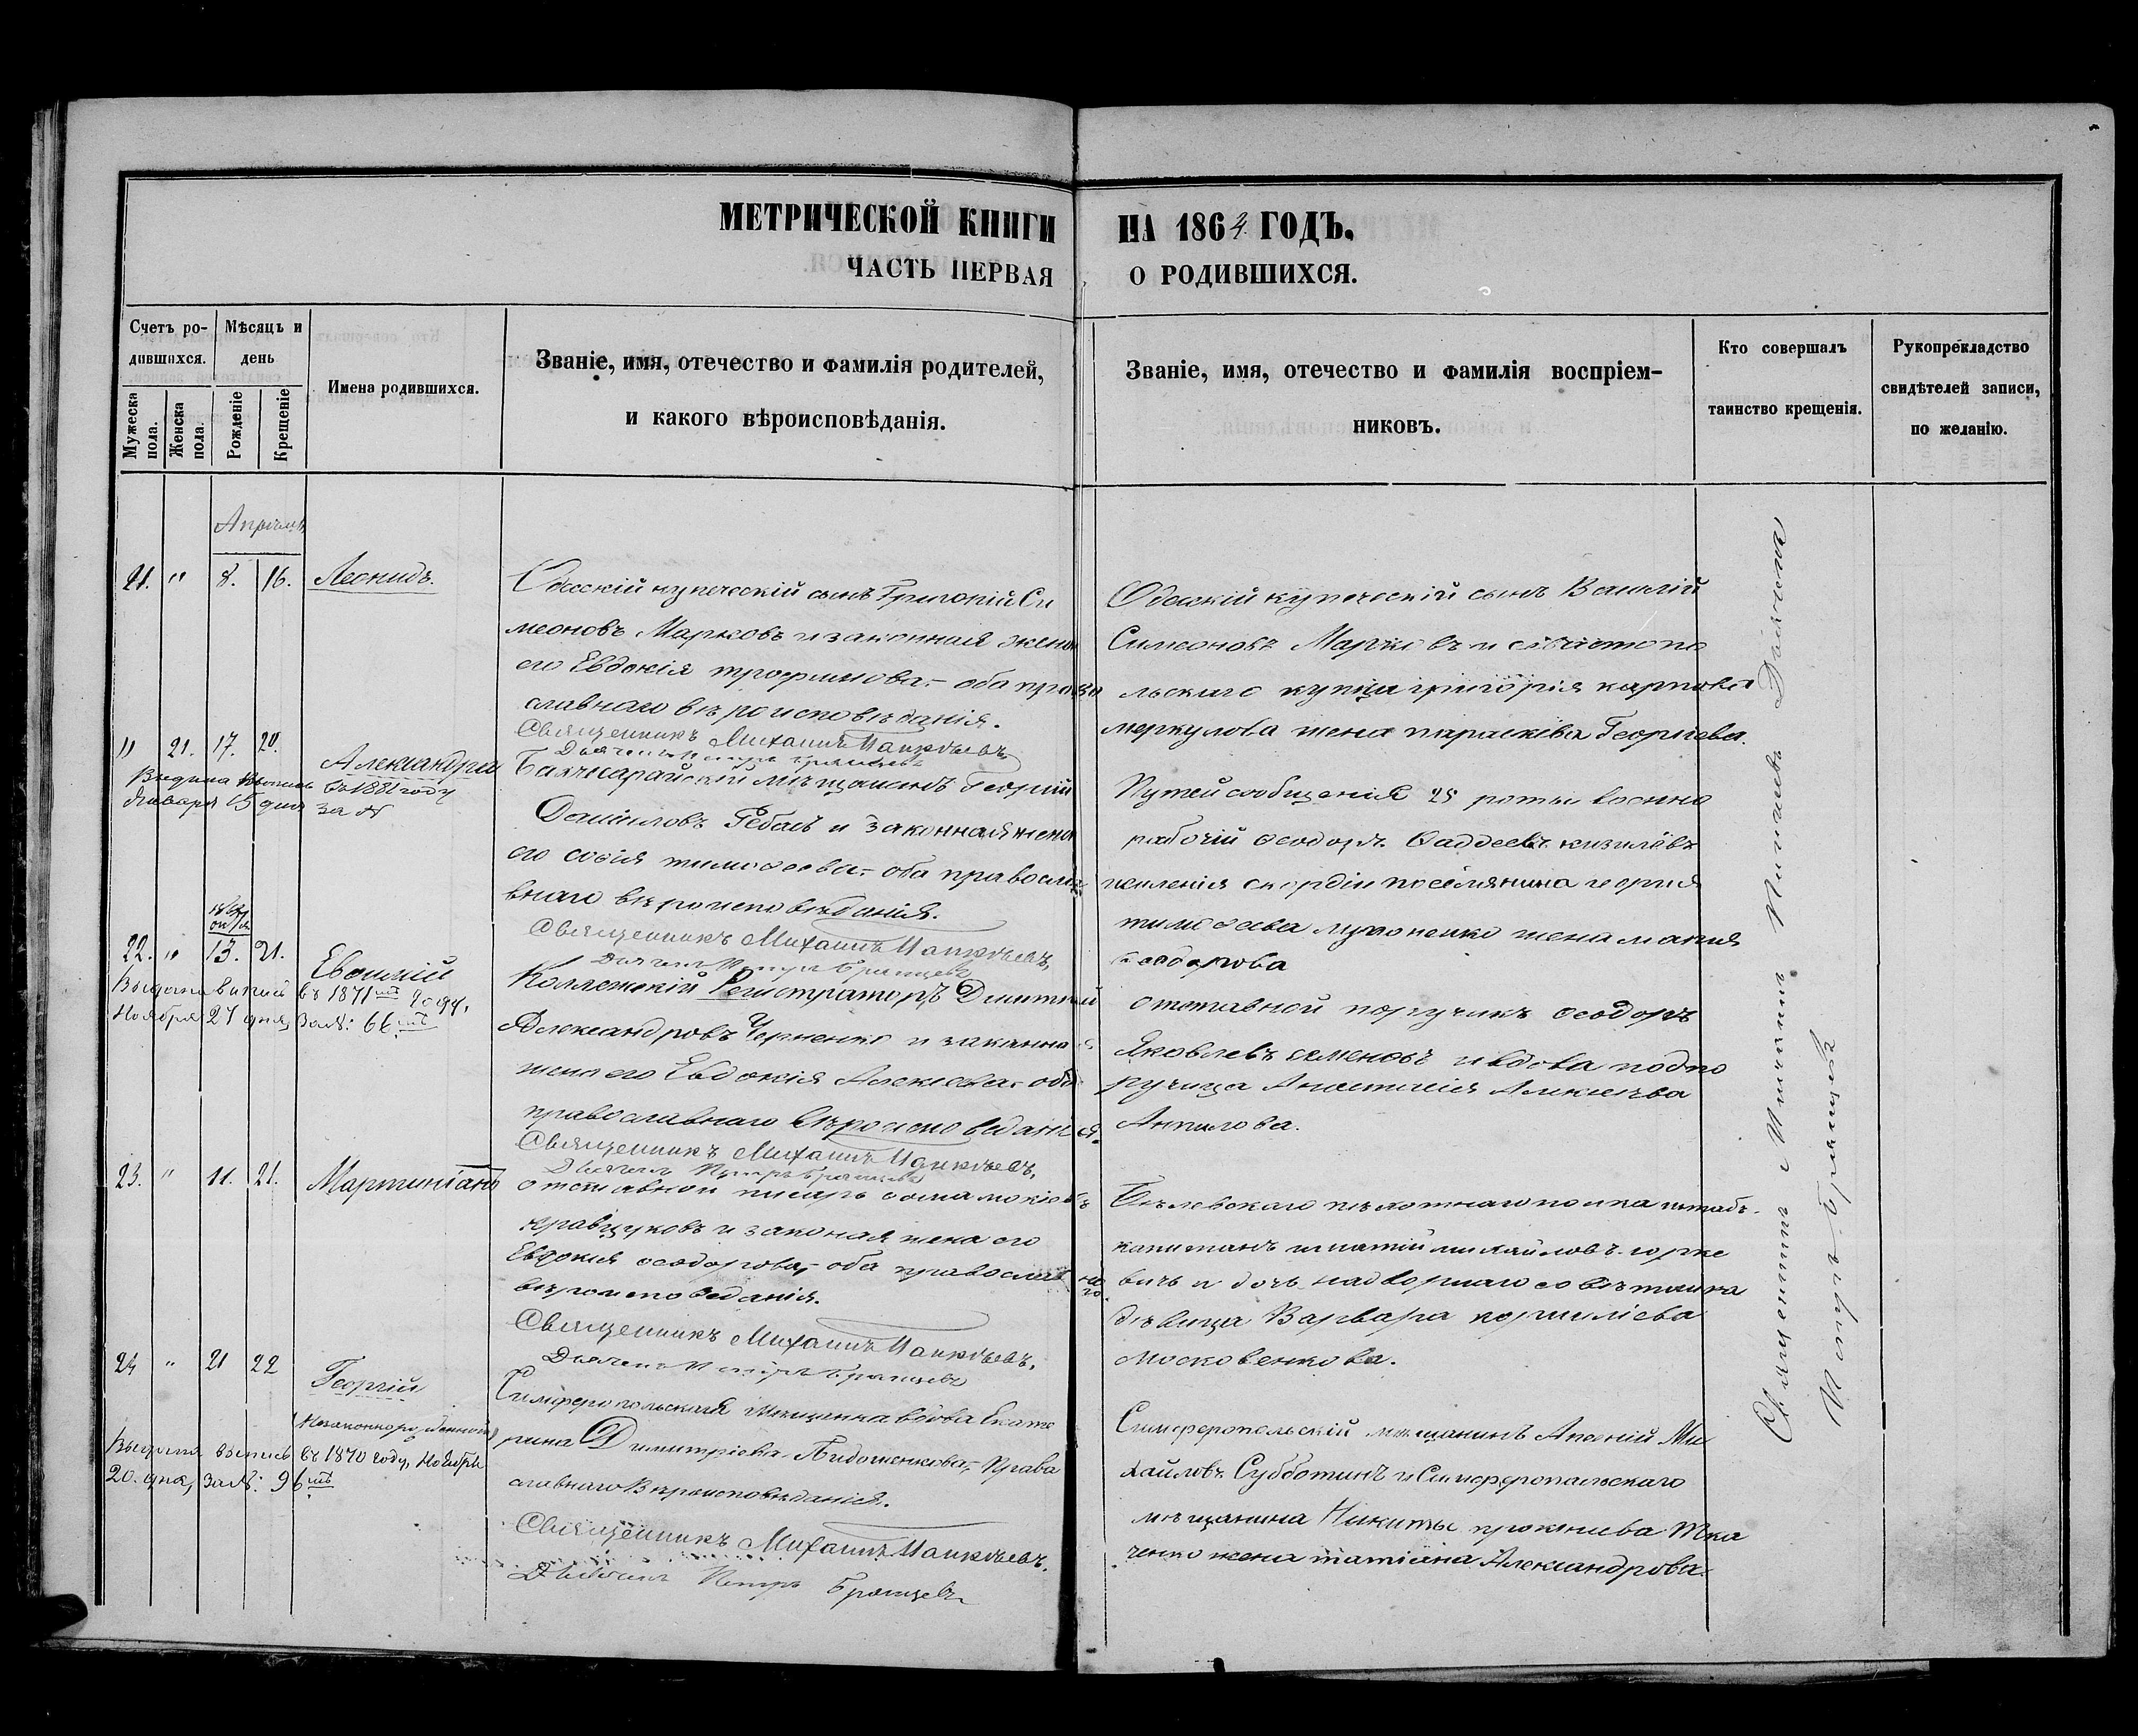 МЕТРИЧЕСКОЙ КНИГИ НА 1864 ГОДЪ.
ЧАСТЬ ПЕРВАЯ О РОДИВШИХСЯ.
Счетъ ро-
дившихся.
Мужеска
пола.
Женска
пола.
Мѣсяцъ и
день
Рожденіе
Крещеніе
Имена родившихся.
Званіе, имя, отечество и фамилія родителей,
и какого вѣроисповѣданія.
Званіе, имя, отечество и фамилія воспріем-
никовъ.
Кто совершалъ
таинство крещенія.
Рукоприкладство
свидѣтелей записи,
по желанію.
Апрѣль
21. " 8. 16. Леонидъ.
Одесскій купеческій сынъ Григорій Си
меоновъ Марковъ и законная жена
его Евдокія трофимова.- оба право
славнаго вѣроисповѣданія.
Священникъ Михаилъ
Дьяченъ Петръ
Одесскій купеческій сынъ Василій
Симеоновъ Марковъ и севастопо
льскаго купца григорія карпова
меркулова жена параскева Георгіева.
" 21. 17. 20. Александра
Выдана выпись въ 1881 году
Января 15 дня за №
Бахчисарайскій мѣщанинъ Георгій
Даниловъ Гебасъ и законная жена
его софія тимофеева.- оба правосла
внаго вѣроисповѣданія.
Священникъ Михаилъ
Дьяченъ Петръ
Путей сообщенія 25 роты военно
рабочій Ѳеодоръ Фаддеевъ
поселянина георгія
тимофеева жена марія
Ѳеодорова
22. " 13. 21. Евгеній
Выдана выпись въ 1871 году,
Ноября 27 дня, за №: 66
Коллежскій Регистраторъ Димитрій
Александровъ Черненко и законная
жена его Евдокія Алексѣева.- оба
православнаго вѣроисповеданія.
Священникъ Михаилъ
Дьяченъ Петръ
отставной поручикъ Ѳеодоръ
Яковлевъ семеновъ и вдова подпо
ручица Анастасія Алексѣева
Анпилова.
23. " 11. 21. Мартиніанъ
отставной писарь
кравцуковъ и законая жена его
Евдокія Ѳеодорова,- оба православнаго
вѣроисповеданія.
Священникъ Михаилъ
Дьяченъ Петръ
Бѣлевскаго пѣхотнаго полка штабъ-
капитанъ игнатій михайловъ
вичъ и дочь надворнаго совѣтника
дѣвица Варвара корниліева
московенкова.
24 " 21 22 Георгій
Незаконнорожденный
Выдана выпись въ 1870 году, Ноября
20. дня, за №: 96
Симферопольская мѣщанка вдова Екате
рина Димитріева Правo
славнаго Вѣроисповѣданія.
Священникъ Михаилъ
Дьяченъ Петръ
Симферопольскій мѣщанинъ Арсеній Ми
хайловъ Субботинъ и Симферопольскаго
мѣщанина Никиты прокопіева Тка
ченко жена татіана Александрова.
Священникъ Михаилъ
Петръ